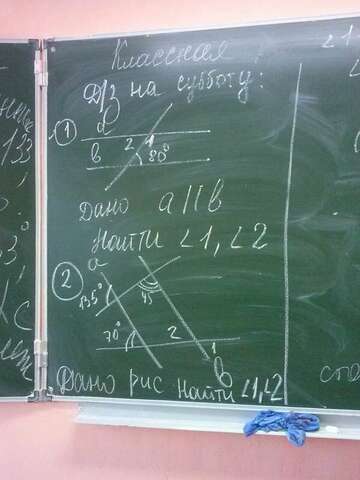 Классная
Д/з на субботу:
1
а
в 2 1
80°
Дано a||b
Найти ∠1, ∠2
а
2
135°
45
70°
2
1
b
Дано рис Найти ∠1, ∠2
133